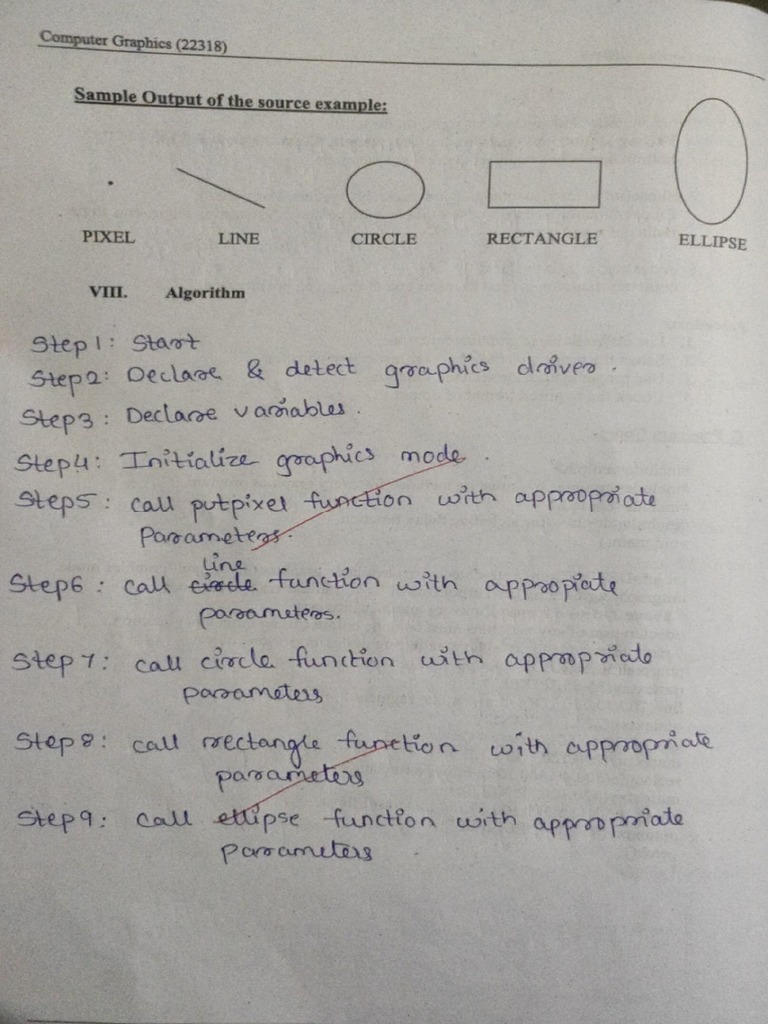 Computer Graphics (22318)
Sample Output of the source example:
PIXEL LINE CIRCLE RECTANGLE ELLIPSE
VIII. Algorithm
Step 1: Start
Step 2: Declare & detect graphics driver.
Step 3: Declare variables.
Step 4: Initialize graphics mode.
Step 5: call putpixel function with appropriate
Parameters.
line
Step 6: call circle function with appropiate
parameters.
Step 7: call circle function with appropriate
parameters
Step 8: call rectangle function with appropriate
parameters
Step 9: call ellipse function with appropriate
parameters